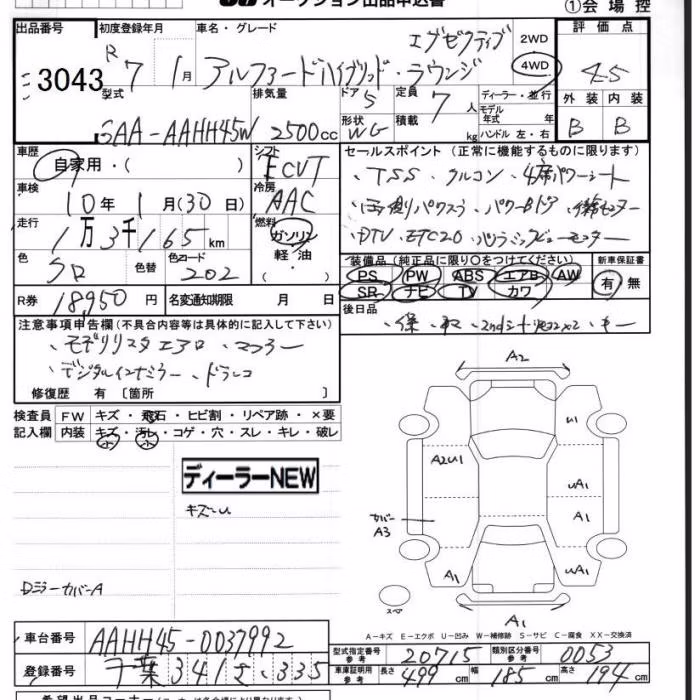 オークション出品申込書
①会場控
出品番号 初度登録年月 車名・グレード 評価点
3043 R7 1月 アルファードハイブリッド・ラウンジ エグゼクティブ 2WD 4WD 4.5
型式 排気量 ドア 5 定員 7人 ディーラー・並行 外装 内装
6AA-AAHH45W 2500cc 形状 WG 積載 kg モデル年式 年式 ハンドル 左・右 B B
車歴 自家用・( ) シフト ECVT
車検 10年1月(30日) 冷房 AAC
走行 1万3千165km 燃料 ガソリン 軽・油 ( )
色 クロ 色替 色コード 202
R券 18950円 名変通知期限 月 日
セールスポイント(正常に機能するものに限ります)
・TSS ・クルコン ・4席パワーシート
・パワーBドア
・DTV ・ETC2.0 ・パノラミックビューモニター
装備品(純正品に限り○をつけてください) 新車保証書
PS PW ABS エアB AW 有・無
SR ナビ TV カワ
後日品 ・保 ・取
注意事項申告欄(不具合内容等は具体的に記入して下さい)
・モデリスタエアロ ・マフラー
・デジタルインナーミラー ・ドラレコ
修復歴 有〔箇所 〕
検査員 FW キズ・飛石・ヒビ割・リペア跡・×要
記入欄 内装 キズ・汚レ・コゲ・穴・スレ・キレ・破レ
小 小
ディーラーNEW
キズ〜U
DミラーカバーA
A2
U1
A2U1
UA1
カバー
A3
A1
A1
UA1
スペア
A1
A-キズ E-エクボ U-凹み W-補修跡 S-サビ C-腐食 XX-交換済
車台番号 AAHH45-0037992
登録番号 千葉 341 さ ・335
型式指定番号 参考 20715 類別区分番号 参考 0053
車庫証明用 参考 長さ 499cm 幅 185cm 高さ 194cm